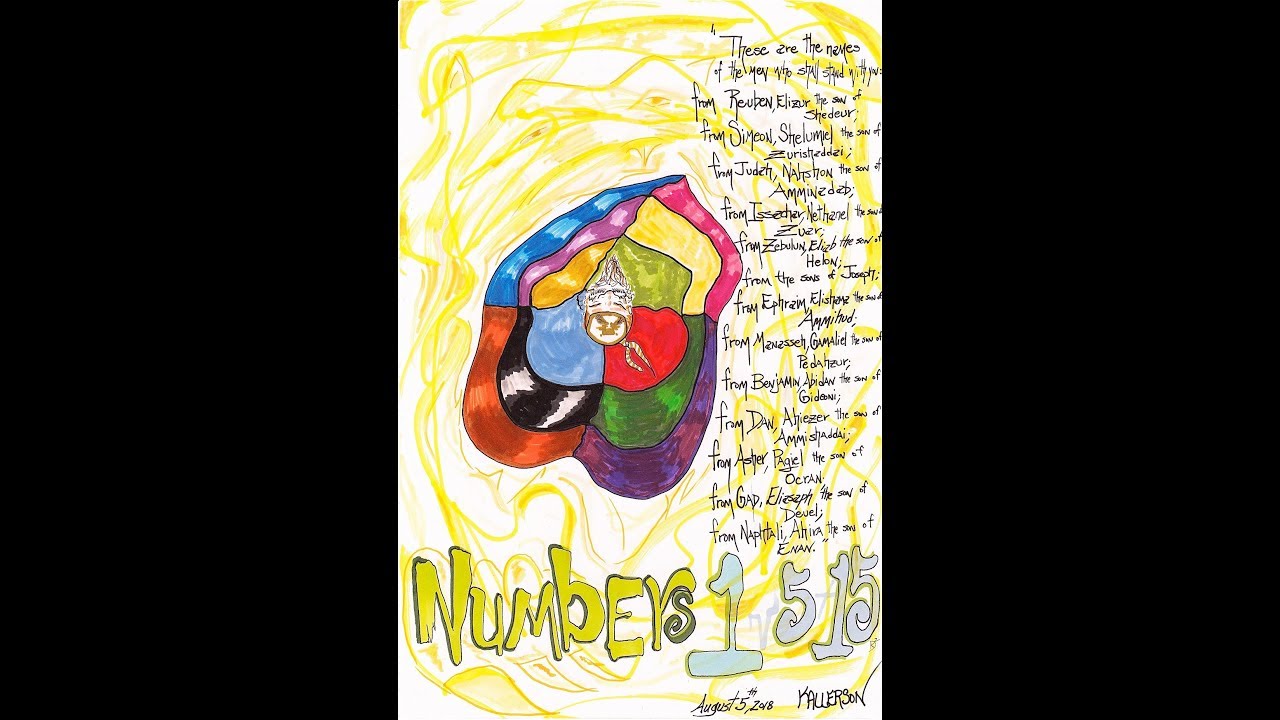 "These are the names
of the men who shall stand with you:
from Reuben, Elizur the son of
Shedeur;
from Simeon, Shelumiel the son of
Zurishaddai;
from Judah, Nahshon the son of
Amminadab;
from Issachar, Nethanel the son of
Zuar;
from Zebulun, Eliab the son of
Helon;
from the sons of Joseph;
from Ephraim, Elishama the son of
Ammihud;
from Manasseh, Gamaliel the son of
Pedahzur;
from Benjamin, Abidan the son of
Gideoni;
from Dan, Ahiezer the son of
Ammishaddai;
from Asher, Pagiel the son of
Ocran.
from Gad, Eliasaph the son of
Deuel;
from Naphtali, Ahira the son of
Enan."
Numbers 1 5 15
August 5th, 2018 KALLERSON